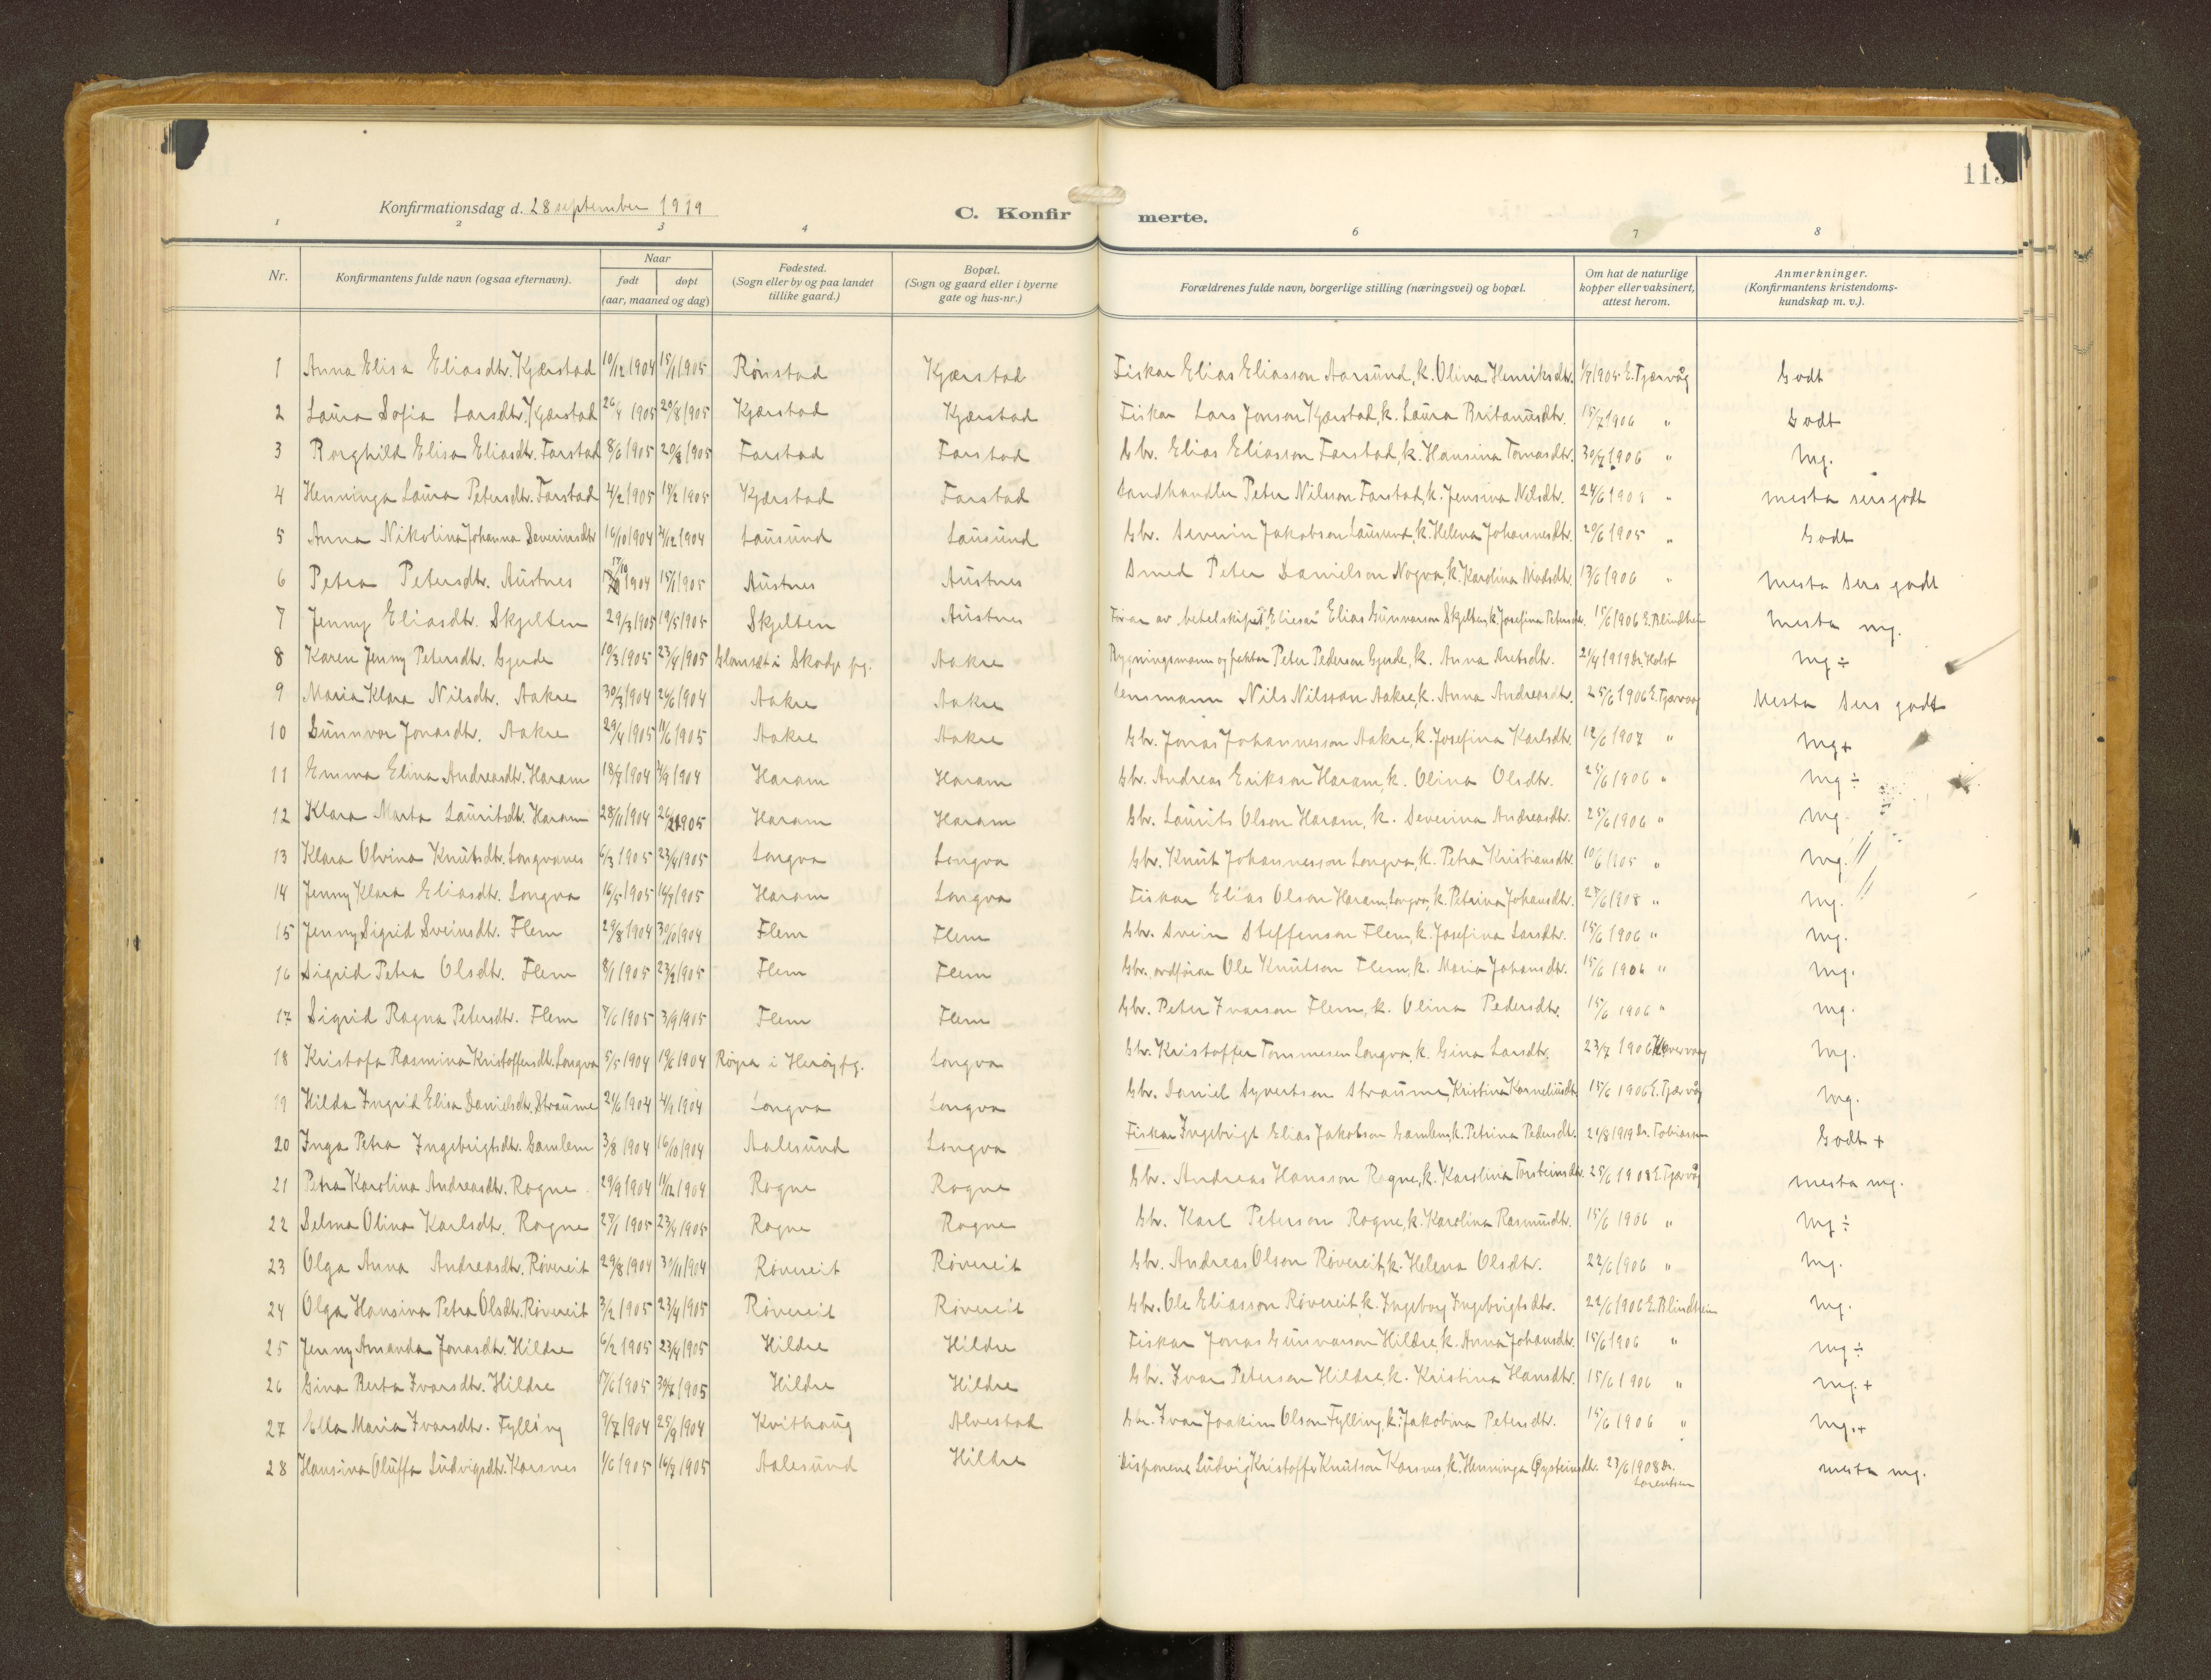 113
Konfirmationsdag d. 28 september 1919
C. Konfirmerte.
1 2 3 4 6 7 8
Nr. Konfirmantens fulde navn (ogsaa efternavn). Naar født døpt (aar, maaned og dag) Fødested. (Sogn eller by og paa landet tillike gaard.) Bopæl. (Sogn og gaard eller i byerne gate og hus-nr.) Forældrenes fulde navn, borgerlige stilling (næringsvei) og bopæl. Om hat de naturlige kopper eller vaksinert, attest herom. Anmerkninger. (Konfirmantens kristendoms-kundskap m. v.).
1 Anna Elisa Eliasdtr. Kjærstad 10/12 1904 15/1 1905 Rønstad Kjærstad Fiskar Elias Eliasson Aarsund, k. Olina Henriksdtr. 1905 E. Tjærvåg Godt
2 Laura Sofia Larsdtr. Kjærstad 1905 20/8 1905 Kjærstad Kjærstad Fiskar Lars Jonson Kjærstad, k. Laura Britanusdtr. 15/7 1906 " Godt
3 Borghild Elisa Eliasdtr. Farstad 8/6 1905 20/8 1905 Farstad Farstad Gbr. Elias Eliasson Farstad, k. Hansina Tomasdtr. 30/7 1906 " Mg.
4 Henninga Laura Petersdtr. Farstad 4/2 1905 1905 Kjærstad Farstad Landhandler Peter Nilsson Farstad, k. Jensina Nilsdtr. 24/6 " mesta sers godt
5 Anna Nikolina Johanna Severinsdtr 16/10 1904 1904 Lausund Lausund Gbr. Severin Jakobson Lausund, k. Helena Johannesdtr. 20/6 1905 " Godt
6 Petra Petersdtr. Austnes 17/10 1904 15/1 1905 Austnes Austnes Smed Peter Danielson Nogva, k. Karolina Madsdtr. 13/6 1906 " Mesta sers godt
7 Jenny Eliasdtr. Skjelten 29/3 1905 19/5 1905 Skjelten Austnes Førar av betelskipet "Elieser" Elias Gunnarson Skjelten, k. Josefina Petersdtr. 15/6 1906 E. Blindheim Mesta mg.
8 Karen Jenny Petersdtr. Gjerde 10/3 1905 23/4 1905 Glomset i Skodje pg. Aakre Bygningsmann og fektar Peter Pederson Gjerde, k. Anna Aretsdtr. 21/4 1919 Dr. Holst Mg ÷
9 Maria Klara Nilsdtr. Aakre 30/3 1904 24/6 1904 Aakre Aakre Lensmann Nils Nilsson Aakre, k. Anna Andreasdtr. 25/6 1906 E. Tjærvaag Mesta sers godt
10 Gunnvor Jonasdtr. Aakre 29/4 1905 11/6 1905 Aakre Aakre Gbr. Jonas Johannesson Aakre, k. Josefina Karlsdtr. 12/6 1907 " Mg +
11 Emma Elina Andreasdtr. Haram 18/7 1904 4/9 1904 Haram Haram Gbr. Andreas Erikson Haram, k. Olina Olsdtr. 25/6 1906 " Mg ÷
12 Klara Marta Lauritsdtr. Haram 28/11 1904 1905 Haram Haram Gbr. Laurits Olson Haram, k. Severina Andreasdtr. 25/6 1906 " Mg.
13 Klara Olvina Knutsdtr. Longvanes 6/3 1905 23/4 1905 Longva Longva Gbr. Knut Johannesson Longva, k. Petra Kristiansdtr. 10/6 1905 " Mg. //
14 Jenny Klara Eliasdtr. Longva 16/5 1905 1905 Haram Longva Fiskar Elias Olson Haram, Longva, k. Petrina Johansdtr. 25/6 1908 " Mg. //
15 Jenny Sigrid Sveinsdtr. Flem 29/8 1904 30/10 1904 Flem Flem Gbr. Svein Steffenson Flem, k. Josefina Larsdtr. 15/6 1906 " Mg.
16 Sigrid Petra Olsdtr. Flem 8/1 1905 23/4 1905 Flem Flem Gbr., ordførar Ole Knutson Flem, k. Maria Johansdtr. 15/6 1906 " Mg.
17 Sigrid Ragna Petersdtr. Flem 7/6 1905 3/9 1905 Flem Flem Gbr. Peter Ivarson Flem, k. Olina Pedersdtr. 15/6 1906 " Mg.
18 Kristofa Rasmina Kristoffersdtr. Longva 5/5 1904 19/6 1904 Røyra i Herøy pg. Longva Gbr. Kristoffer Tommesen Longva, k. Gina Larsdtr. 23/7 1906 Mg.
19 Hilda Ingrid Elisa Danielsdtr. Straume 21/6 1904 1904 Longva Longva Gbr. Daniel Syvertson Straume, Kristina Korneliusdtr 15/6 1906 E. Tjærvåg Mg.
20 Inga Petra Ingebrigtsdtr. Gamlem 3/8 1904 16/10 1904 Aalesund Longva Fiskar Ingebrigt Elias Jakobson Gamlem, k. Petrina Pedersdtr. 21/8 1919 Dr. Tobiassen Godt +
21 Petra Karolina Andreasdtr. Rogne 29/9 1904 11/12 1904 Rogne Rogne Gbr. Andreas Hansson Rogne, k. Karolina Torsteinsdtr. 25/6 1908 E. Tjærvåg mesta mg.
22 Selma Olina Karlsdtr. Rogne 27/1 1905 23/4 1905 Rogne Rogne Gbr. Karl Peterson Rogne, k. Karolina Rasmusdtr. 15/6 1906 " Mg ÷
23 Olga Anna Andreasdtr. Røvereit 29/8 1904 30/11 1904 Røvereit Røvereit Gbr. Andreas Olson Røvereit, k. Helena Olsdtr. 22/6 1906 " Mg.
24 Olga Hansina Petra Olsdtr. Røvereit 3/2 1905 23/4 1905 Røvereit Røvereit Gbr. Ole Eliasson Røvereit, k. Ingeborg Ingebrigtsdtr. 22/6 1906 E. Blindheim Mg.
25 Jenny Amanda Jonasdtr. Hildre 6/2 1905 23/4 1905 Hildre Hildre Fiskar Jonas Gunnarson Hildre, k. Anna Johansdtr. 15/6 1906 " Mg ÷
26 Gina Berta Ivarsdtr. Hildre 17/6 1905 30/7 1905 Hildre Hildre Gbr. Ivar Peterson Hildre, k. Kristina Hansdtr. 15/6 1906 " Mg. +
27 Ella Maria Ivarsdtr. Fylling 9/7 1904 25/9 1904 Kvithaug Alvestad Gbr. Ivar Joakim Olson Fylling, k. Jakobina Petersdtr. 15/6 1906 " Mg. +
28 Hansina Oluffa Ludvigsdtr. Karsnes 1/6 1905 16/7 1905 Aalesund Hildre Disponent Ludvig Kristoffer Knutson Karsnes, k. Henninga Øysteinsdtr. 23/6 1908 Dr. Lorentsen mesta mg.